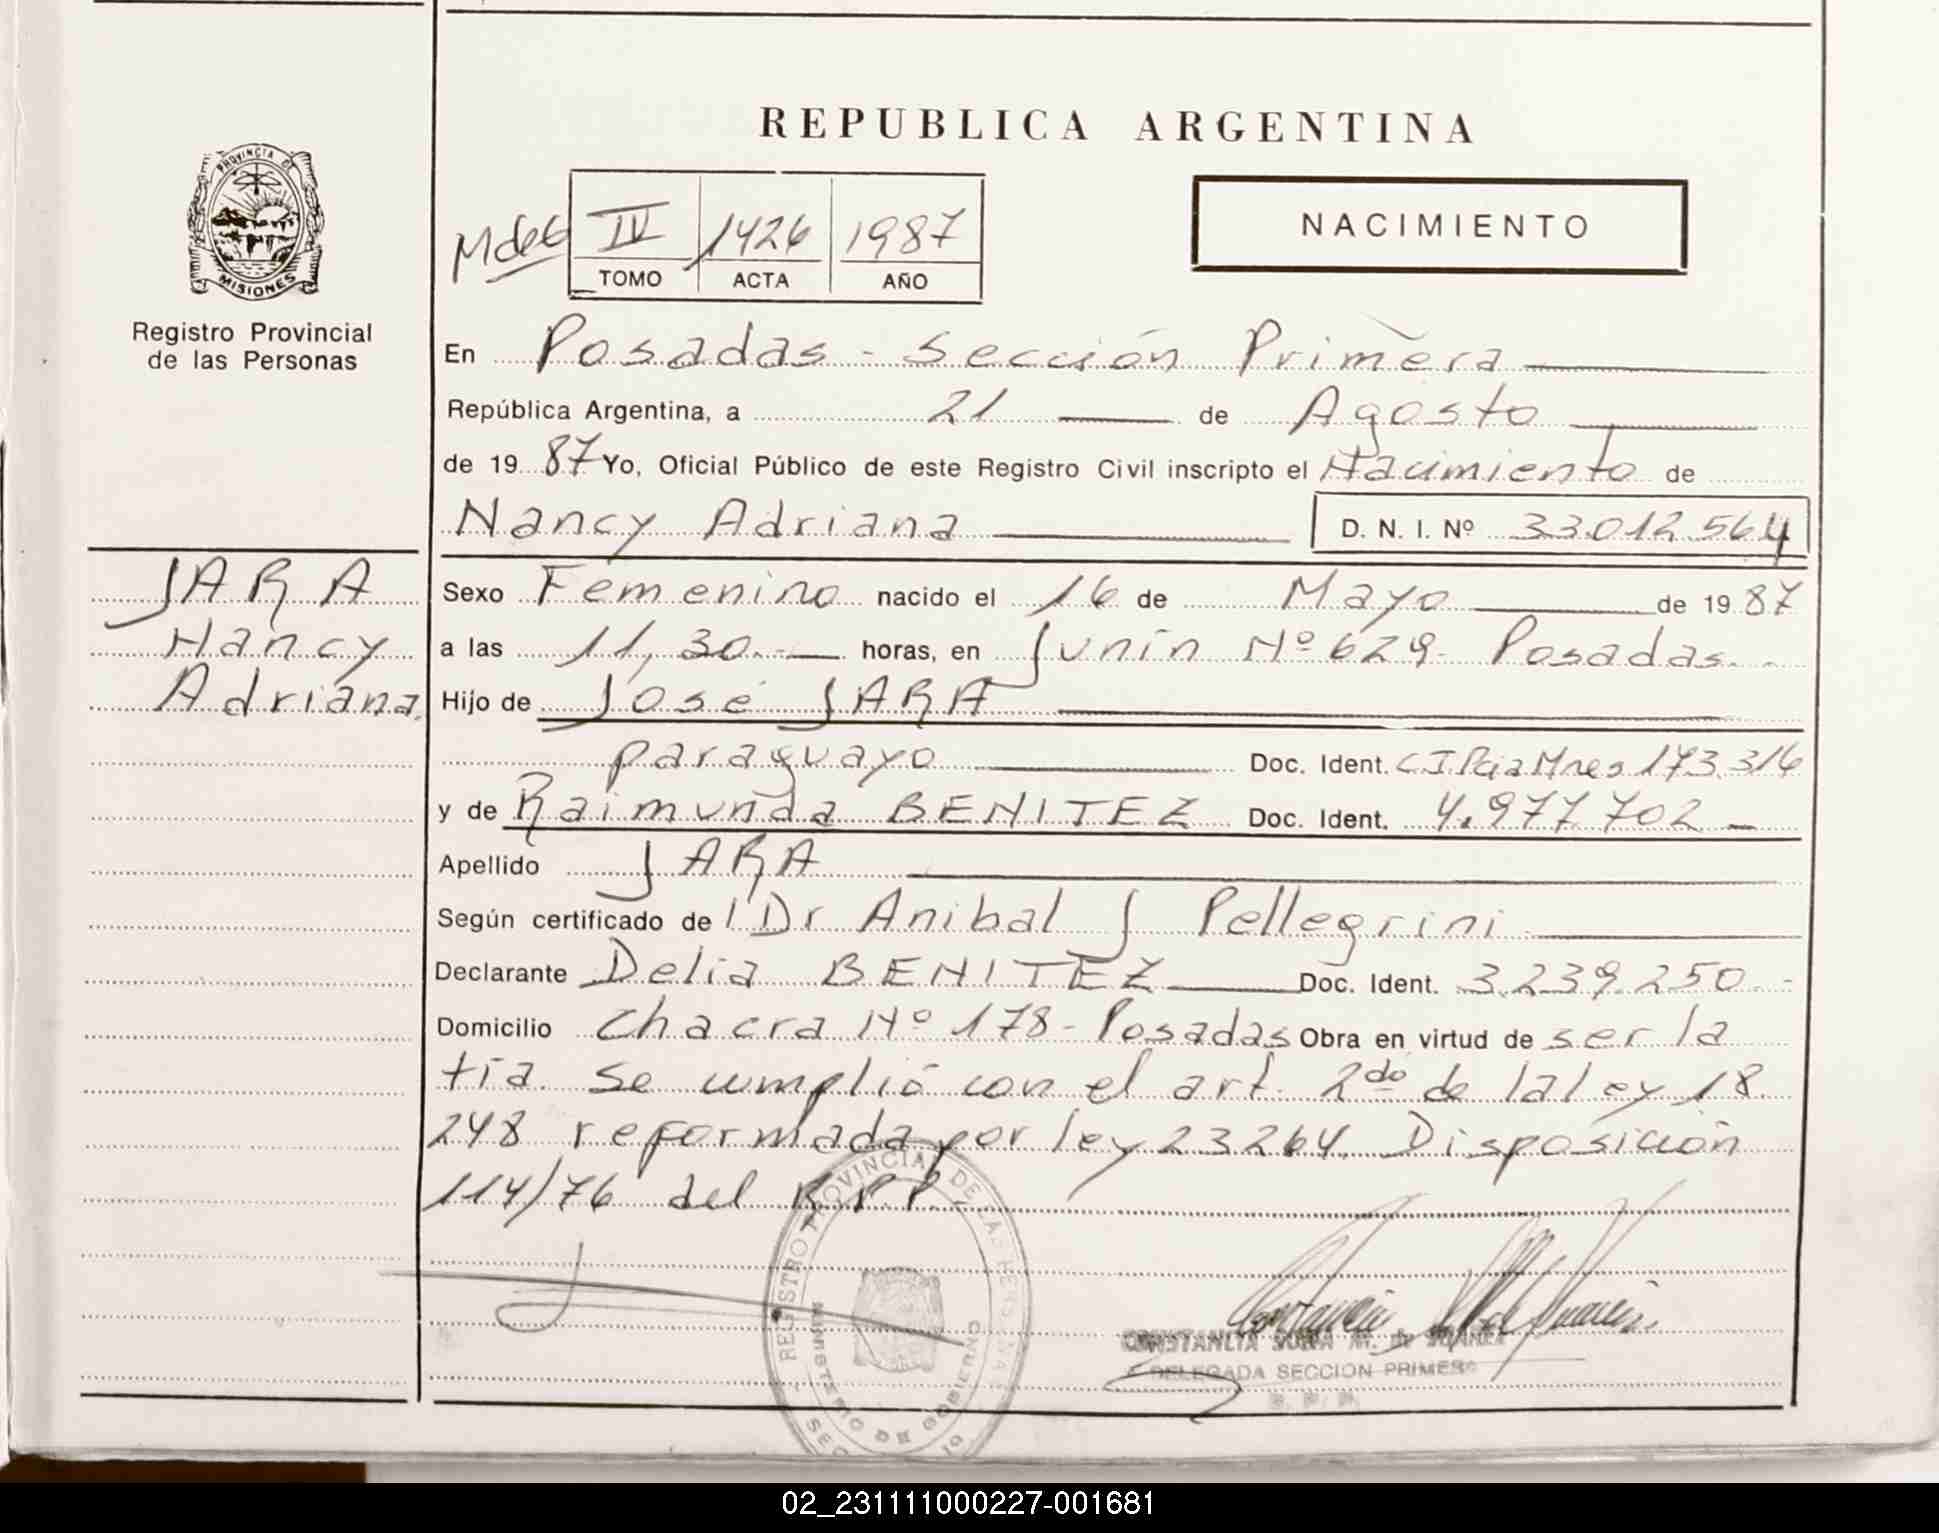 REPUBLICA ARGENTINA
PROVINCIA DE
MISIONES
Registro Provincial
de las Personas
IV 1426 1987
TOMO ACTA AÑO
NACIMIENTO
En Posadas - Sección Primera
República Argentina, a 21 de Agosto
de 1987 Yo, Oficial Público de este Registro Civil inscripto el Nacimiento de
Nancy Adriana D. N. I. Nº 33.012.564
JARA
Nancy
Adriana.
Sexo Femenino nacido el 16 de Mayo de 1987
a las 11,30.- horas, en Junín Nº 629- Posadas.-
Hijo de José JARA
paraguayo Doc. Ident. CIPciaMnes 173.316
y de Raimunda BENITEZ Doc. Ident. 4.977.702 -
Apellido JARA
Según certificado de l Dr Anibal J Pellegrini
Declarante Delia BENITEZ Doc. Ident. 3.239.250.-
Domicilio Chacra Nº 178- Posadas Obra en virtud de ser la
tía. Se cumplió con el art. 2do de la ley 18.
248 reformada por ley 23264. Disposición
114/76 del R.P.P.
REGISTRO PROVINCIAL DE LAS PERSONAS
MINISTERIO DE GOBIERNO
CONSTANCIA SONIA M. de SUAREZ
DELEGADA SECCION PRIMERA
R. P. P.
02_231111000227-001681